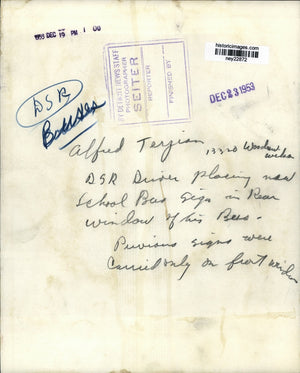 historicimages.com
ney22872
1953 DEC 19 PM 1 00
BY DETROIT NEWS STAFF
PHOTOGRAPHER
SEITER
REPORTER
FINISHED BY
DEC 23 1953
DSR
Busses
Alfred Terjian
13320 Woodrow
Wilson
DSR Driver placing new
School Bus sign in Rear
window of his Bus -
Previous signs were
Carried only on front window